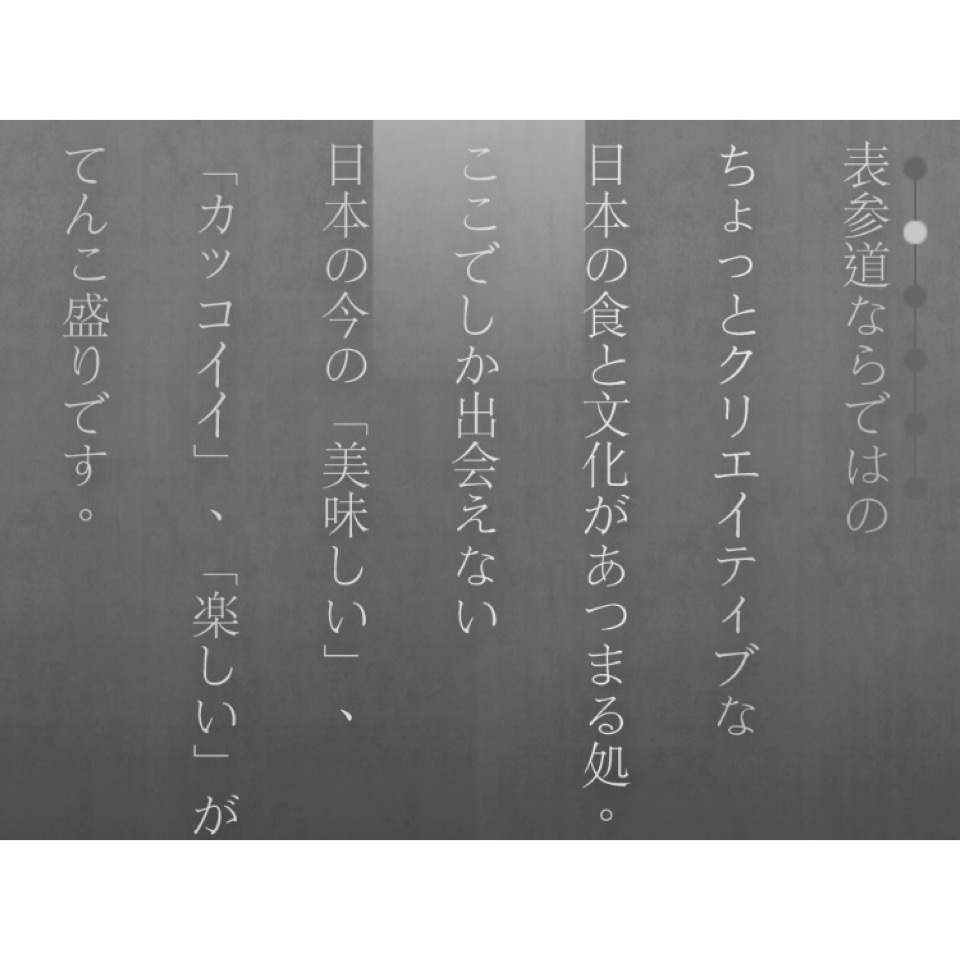 表参道ならではの
ちょっとクリエイティブな
日本の食と文化があつまる処。
ここでしか出会えない
日本の今の「美味しい」、
「カッコイイ」、「楽しい」が
てんこ盛りです。